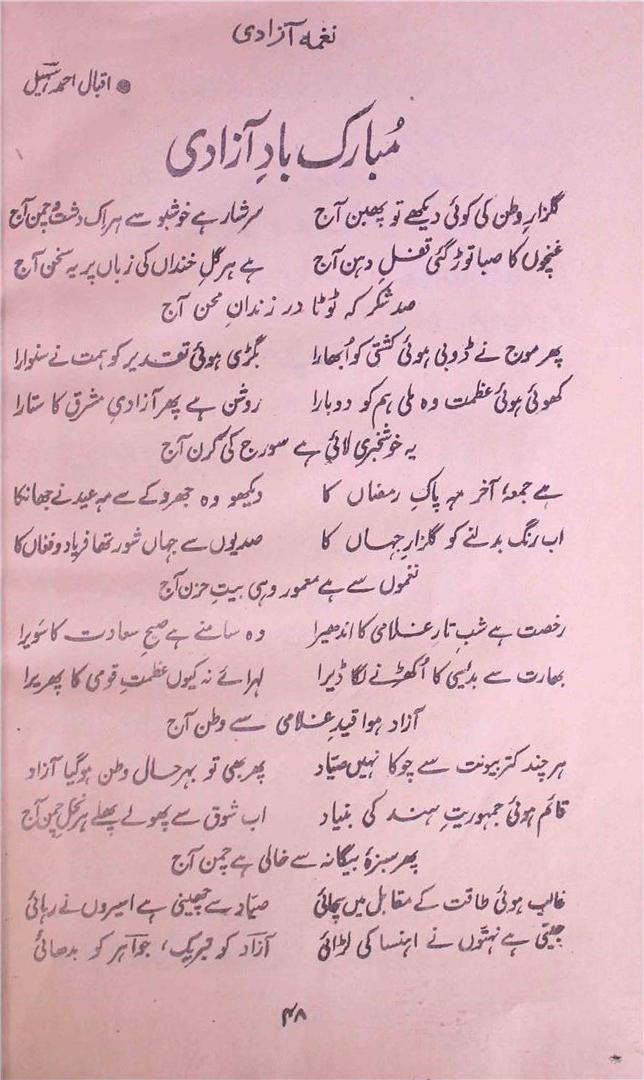 نغمہ آزادی
● اقبال احمد سہیل
مُبارک بادِ آزادی
گلزارِ وطن کی کوئی دیکھے تو پھبن آج سرشار ہے خوشبو سے ہر اک دشت و چمن آج
غنچوں کا صبا توڑ گئی قفلِ دہن آج ہے ہر گلِ خنداں کی زباں پر یہ سخن آج
صد شکر کہ ٹوٹا در زندانِ محن آج
پھر موج نے ڈوبی ہوئی کشتی کو اُبھارا بگڑی ہوئی تقدیر کو ہمت نے سنوارا
کھوئی ہوئی عظمت وہ ملی ہم کو دوبارا روشن ہے پھر آزادیِ مشرق کا ستارا
یہ خوشخبری لائی ہے سورج کی کرن آج
ہے جمعۂ آخر مہِ پاکِ رمضاں کا دیکھو وہ جھروکے سے مہِ عید نے جھانکا
اب رنگ بدلنے کو گلزارِ جہاں کا صدیوں سے جہاں شور تھا فریاد و فغاں کا
نغموں سے ہے معمور وہی بیتِ حزن آج
رخصت ہے شبِ تارِ غلامی کا اندھیرا وہ سامنے ہے صبحِ سعادت کا سَویرا
بھارت سے بدیسی کا اُکھڑنے لگا ڈیرا لہرائے نہ کیوں عظمتِ قومی کا پھریرا
آزاد ہوا قیدِ غلامی سے وطن آج
ہر چند کتر بیونت سے چوکا نہیں صیّاد پھر بھی تو بہرحال وطن ہو گیا آزاد
قائم ہوئی جمہوریتِ ہند کی بنیاد اب شوق سے پھولے پھلے ہر نخلِ چمن آج
پھر سبزۂ بیگانہ سے خالی ہے چمن آج
غالب ہوئی طاقت کے مقابل میں سچائی صیّاد سے چھینی ہے اسیروں نے رہائی
جیتی ہے نہتّوں نے اہنسا کی لڑائی آزاد کو تبریک، جواہر کو بدھائی
۴۸